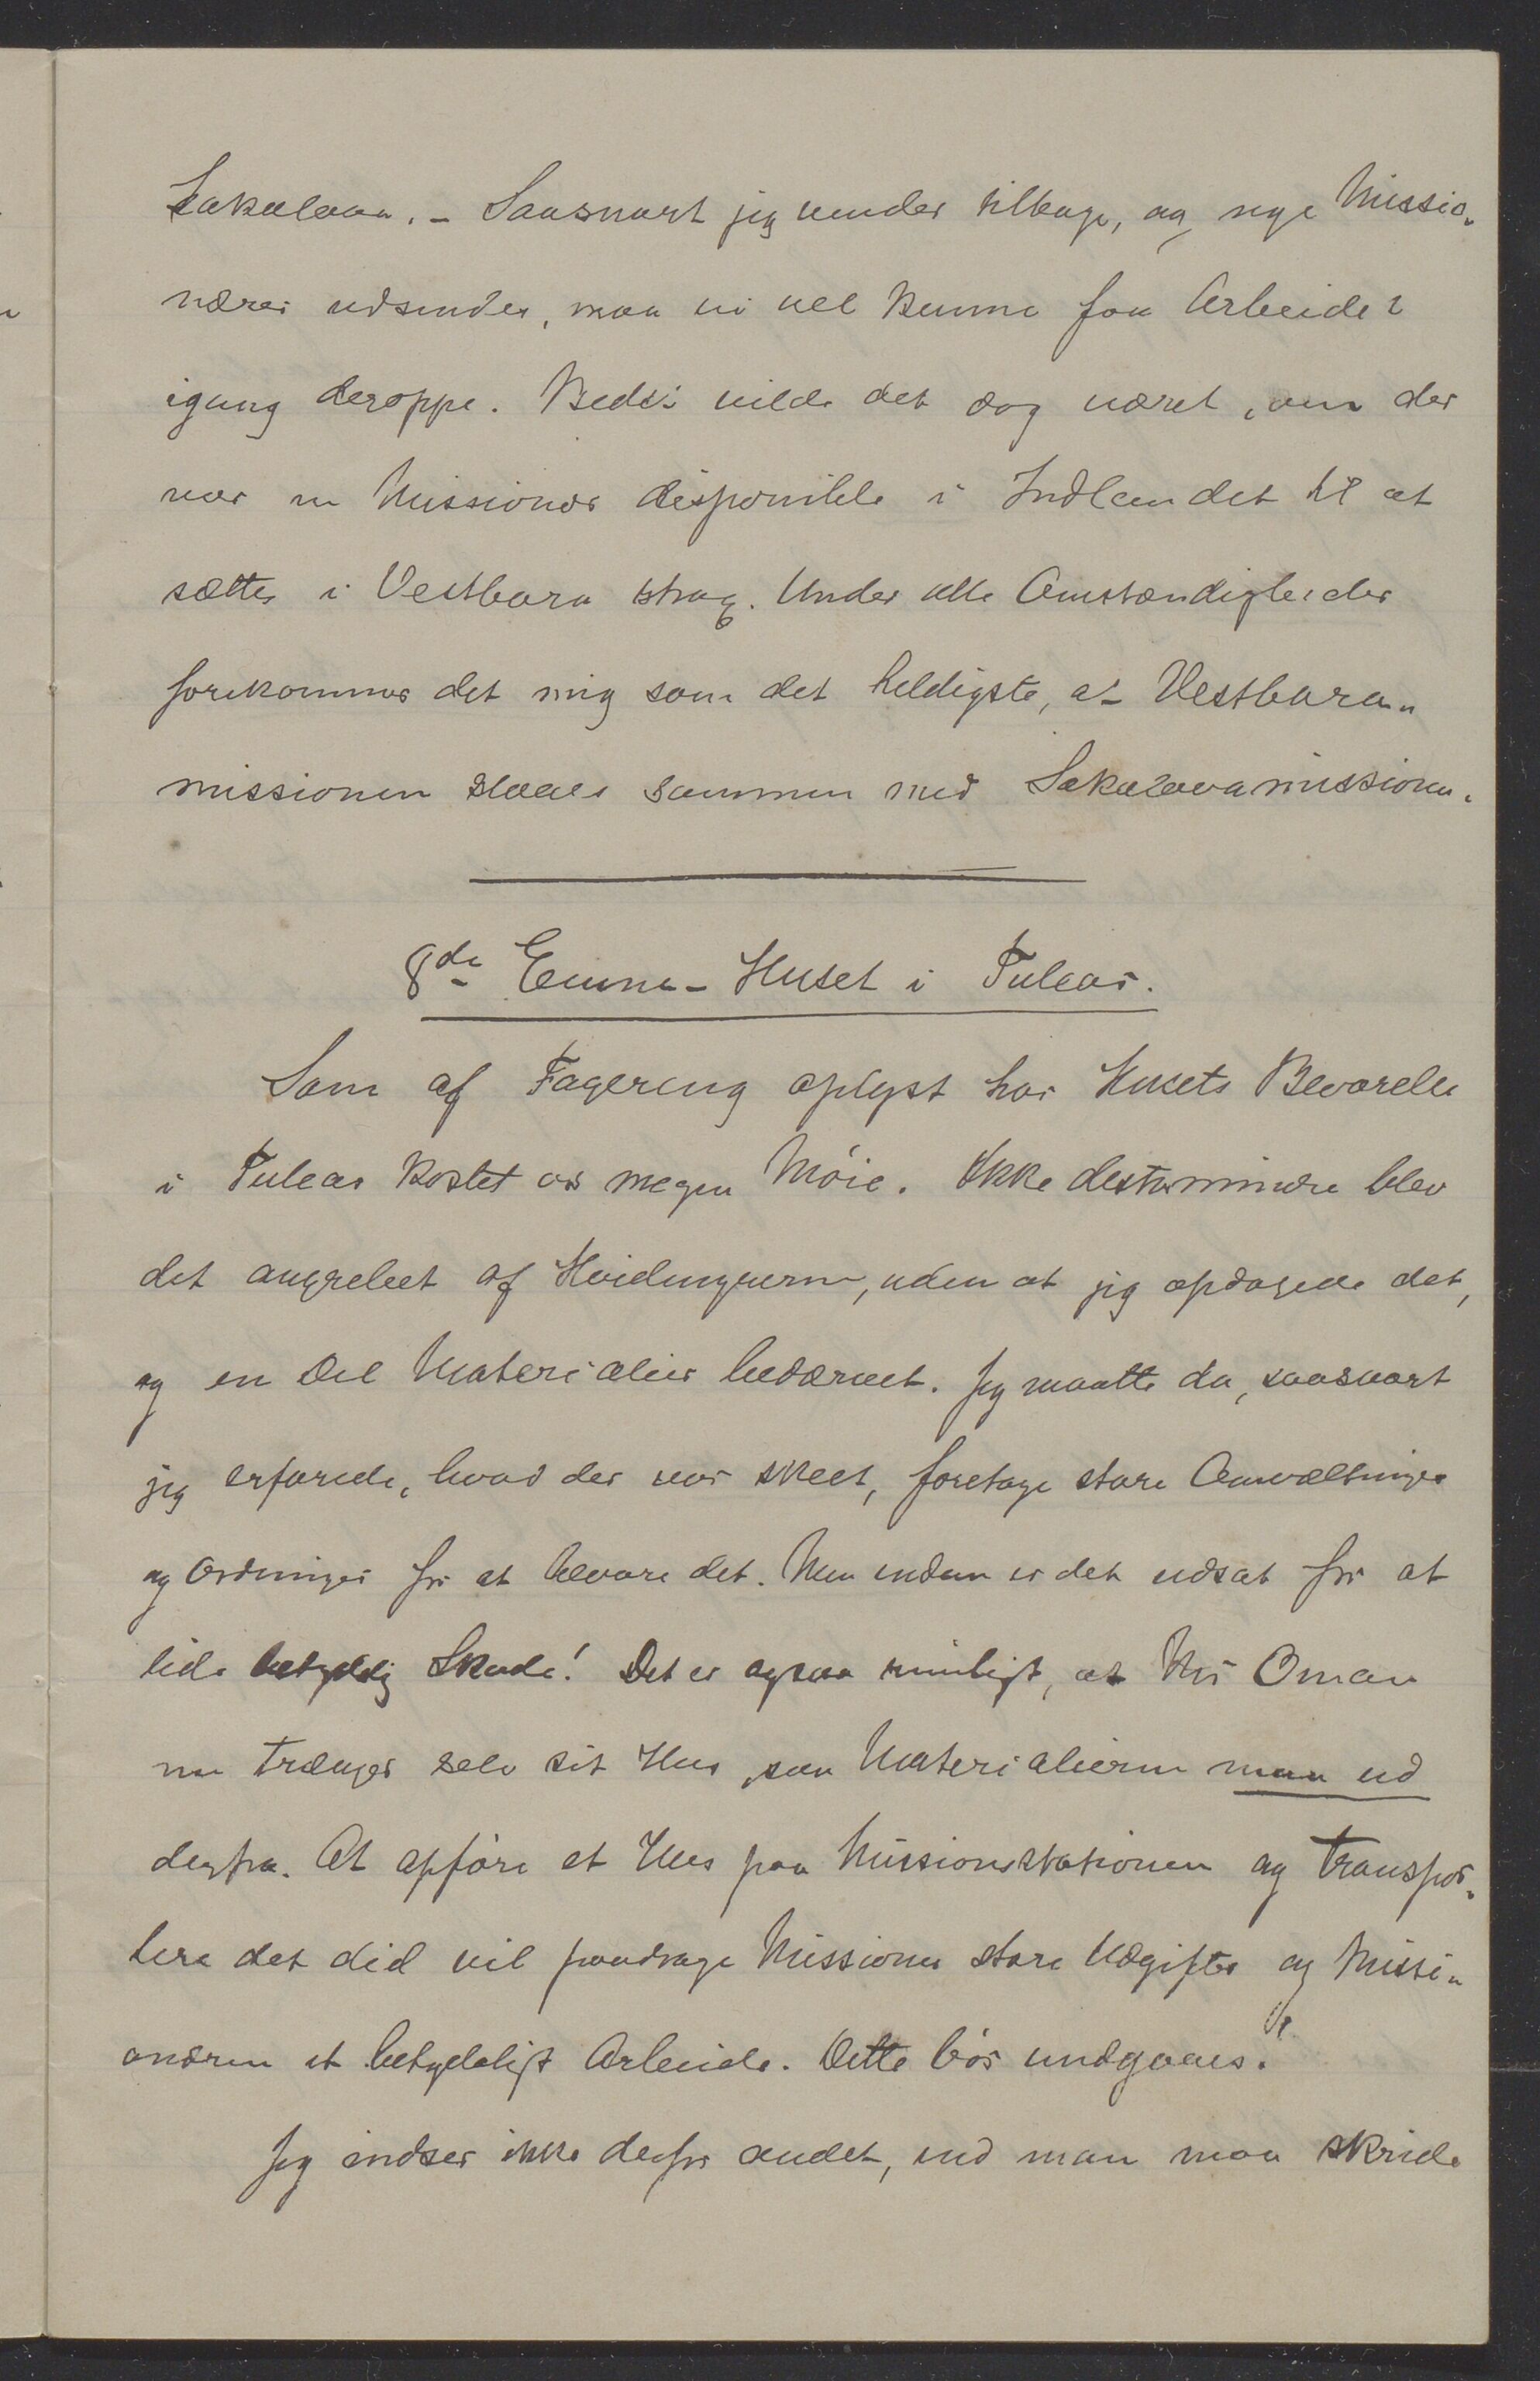 Sakalava. – Saasnart jeg vender tilbage, og nye Missio„
nærer udsendes, maa vi vel kunne faa Arbeidet
igang deroppe. Bedst vilde det dog været, om der
var en Missionær disponibel i Indlandet til at
sættes i Vestbara strax. Under alle Omstændigheder
forekommer det mig som det heldigste, at Vestbara„
missionen slaaes sammen med Sakalavamissionen.
8de Emne – Huset i Tulear.
Som af Fagereng oplyst har Husets Bevarelse
i Tulear kostet os megen Møie. Ikke destomindre blev
det angrebet af Hvidmyrerne, uden at jeg opdagede det,
og en Del Materialier bedærvet. Jeg maatte da, saasnart
jeg erfarede, hvad der var skeet, foretage store Omvæltninger
og Ordninger for at bevare det. Men endnu er det udsat for at
lide betydelig Skade! Det er ogsaa rimeligt, at Mr Oman
nu trænger selv sit Hus, saa Materialierne maa ud
derfra. At opføre et Hus paa Missionsstationen og transpor„
tere det did vil paadrage Missionen store Udgifter og Missi„
onæren et betydeligt Arbeide. Dette bør undgaaes.
Jeg indser ikke derfor andet, end man maa skride